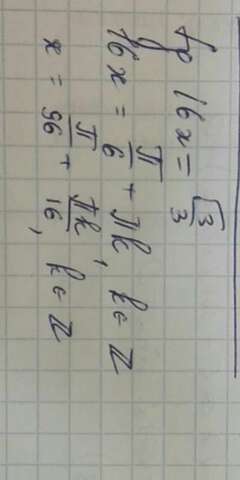 tg 16x = √3/3
16x = π/6 + πk, k ∈ Z
x = π/96 + πk/16, k ∈ Z